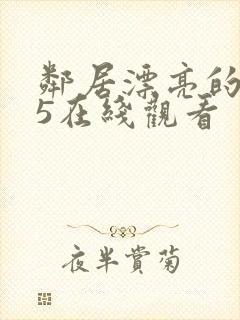 鄰居漂亮的
5在綫觀看
夜半賞菊